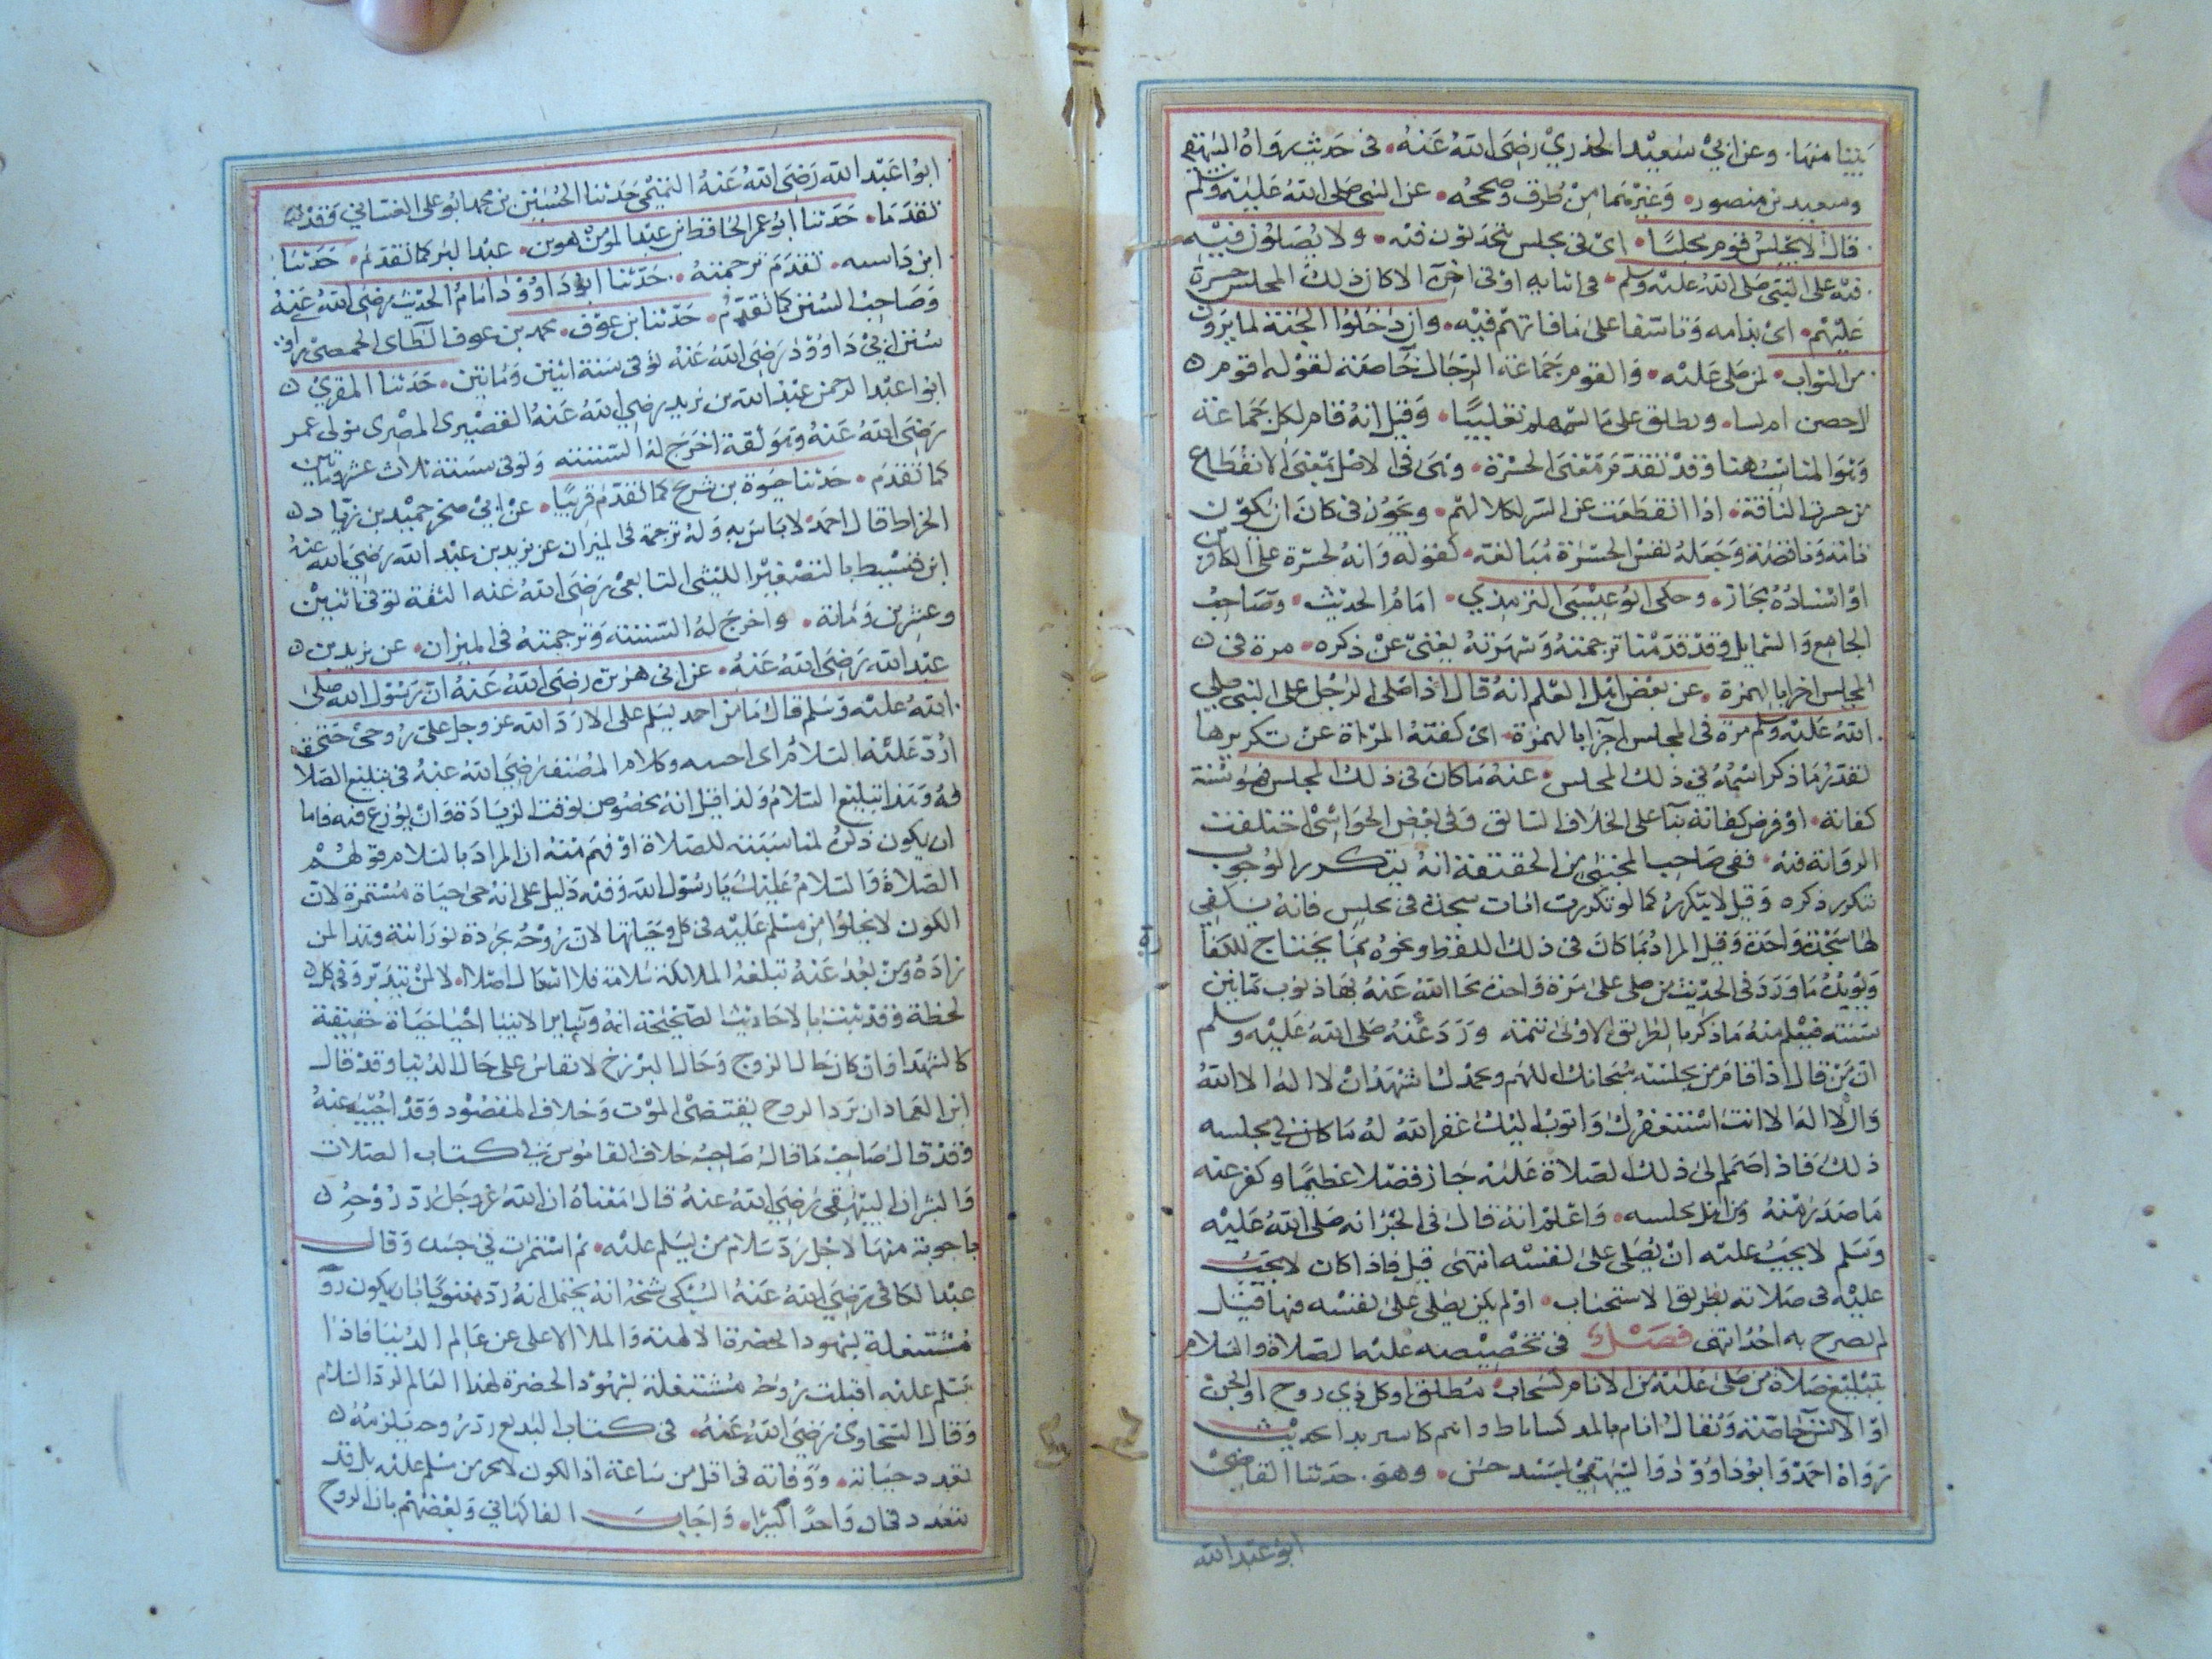 بيننا منها. وعن ابي سعيد الخدري رضي الله عنه. في حديث رواه البيهقي
وسعيد بن منصور. وغيرهما من طرق وصححه. عن النبي صلى الله عليه وسلم
قال لا يجلس قوم مجلسا. اي في مجلس يتحدثون فيه. ولا يصلون فيه
فيه على النبي صلى الله عليه وسلم. في اثنائه او في اخره الا كان ذلك المجلس حسرة
عليهم. اي ندامه وتاسفا على ما فاتهم فيه. وان دخلوا الجنة لما يرون
من الثواب. لمن صلى عليه. والقوم جماعة الرجال خاصة لقوله اقوم
ال حصن ام نسا. ويطلق على ما تغليبا. وقيل انه قام لكل جماعة
وهو المناسب هنا وقد تقدم معنى الحسرة. وهي في الاصل بمعنى الانقطاع
من حسرت الناقة. اذا انقطعت عن السير لكلالهم. ويجوز في كان ان يكون
تامة وناقصة وجعله نفس الحسرة مبالغة. كقوله وانه لحسرة على الكافرين
او اسناده مجاز. وحكى ابو عيسى الترمذي. امام الحديث. وصاحب
الجامع والشمايل وقد قدمنا ترجمته وشهرته يغني عن ذكره. مرة في
المجلس اخرا بالهمزة. عن بعض اهل العلم انه قال اذا صلى الرجل على النبي صلى
الله عليه وسلم مرة في المجلس اجزا بالهمزة. اي كفته المراة عن تكريرها
لتقدم ما ذكر اسمه في ذلك المجلس. عنه ما كان في ذلك المجلس فهو سنة
كفاية. او فرض كفاية بنآ على الخلاف السابق وفي بعض الحواشي اختلفت
الرواية فيه. ففي صاحب المجتبى من الحقيقة انه يتكرر الوجوب
بتكرر ذكره وقيل لا يتكرر كما لو تكررت ايات سجدة في مجلس فانه يكفي
لها سجدة واحدة وقيل المراد بما كان في ذلك اللغو ونحوه مما يحتاج للكفا
ويويده ما ورد في الحديث من صلى علي مرة واحدة محا الله عنه بها ذنوب ثمانين
سنته فيعلم منه ما ذكر بالطريق الاولى تتمة ورد عنه صلى الله عليه وسلم
ان من قال اذا قام من مجلسه سبحانك اللهم وبحمدك اشهد ان لا اله الا الله
وان لا اله الا انت استغفرك واتوب اليك غفر الله له ما كان في مجلسه
ذلك فاذا ضم الى ذلك الصلاة عليه جاز فضلا عظيما وكفر عنه
ما صدر منه من اهل مجلسه. واعلم انه قال في الخبر انه صلى الله عليه
وسلم لا يجب عليه ان يصلي على نفسه انتهى قيل فاذا كان لا يجب
عليه في صلاته بطريق الاستحباب. او لم يكن يصلي على نفسه فيها قيل
لم يصرح به احد انتهى فصل في تخصيصه عليه الصلاة والسلام
بتبليغ صلاة من صلى عليه من الانام كسحاب مطلق او كل ذي روح او الجن
او الانس خاصة ويقال انام بالمد كساباط وانيم كامير بدا حديث
رواه احمد وابو داوود والبيهقي بسند حسن. وهو. حدثنا القاضي
ابو عبد الله
ابوا عبد الله رضي الله عنه التميمي حدثنا الحسين بن محمد ابو علي الغساني وقد
تقدما. حدثنا ابو عمر الحافظ ابن عبد المومن هو بن. عبد البر كما تقدم. حدثنا
ابن داسه. تقدم ترجمته. حدثنا ابو داوود امام الحديث رضي الله عنه
وصاحب السنن كما تقدم. حدثنا بن عوف. محمد بن عوف الطاي الحمصي راوي
سنن ابي داوود رضي الله عنه توفي سنة اثنين ومائتين. حدثنا المقري
ابوا عبد الرحمن عبد الله بن يزيد رضي الله عنه القصيري المصري مولى عمر
رضي الله عنه وهو ثقة اخرج له الستته وتوفي سنة ثلاث عشر ومايتين
كما تقدم. حدثنا حيوة بن شريح كما تقدم قريبا. عن ابي صخر حميد بن زياد
الخراط قال احمد لا باس به وله ترجمة في الميزان عن يزيد بن عبد الله رضي الله عنه
ابن قسيط بالتصغير الليثي التابعي رضي الله عنه الثقة توفي اثنين
وعشرين ومائة. واخرج له الستته وترجمته في الميزان. عن يزيد بن
عبد الله رضي الله عنه. عن ابي هريرة رضي الله عنه ان رسول الله صلى
الله عليه وسلم قال ما من احد يسلم علي الا رد الله عز وجل علي روحي حتى
ارد عليه السلام اي احسه وكلام المصنف رضي الله عنه في تبليغ الصلا
فه وهذا تبليغ السلام ولذا قيل انه مخصوص بوقت الزيادة وان يوزع فيه فاما
ان يكون ذكره لمناسبته للصلاة او فهم منه ان المراد بالسلام قولهم
الصلاة والسلام عليك يا رسول الله وفيه دليل على انه حي حياة مستمرة لان
الكون لا يخلوا من مسلم عليه في كل وحياتها لان روحه مجردة نورانية وهذا لمن
زاده ومن بعد عنه تبلغه الملائكة سلامه فلا اشكال اصلا. لا لمن يتدبر وفي كل
لحظة وقد ثبت بالاحاديث الصحيحة انه وساير الانبيا احيا حياة حقيقة
كالشهدا وان كان حال الروح وحال البرزخ لا تقاس على حال الدنيا وقد قال
ابن العماد ان رد الروح يقتضي الموت وخلاف المقصود وقد اجيب عنه
وقد قال صاحب ما قاله صاحب خلاف القاموس في كتاب الصلات
والبشر ان البيهقي رضي الله عنه قال معناه ان الله عز وجل رد روحه
باجوبة منها لاجل رد سلام من يسلم عليه. ثم استمرت في جسده وقال
عبد الكافي رضي الله عنه السبكي شيخه انه يحتمل انه رد معنويا بان يكون روحه
مشتغلة بشهود الحضرة الالهية والملا الاعلى عن عالم الدنيا فاذا
سلم عليه اقبلت روحه مشتغلة بشهود الحضرة لهذا العالم لرد السلام
وقال السخاوي رضي الله عنه. في كتاب البديع رد روحه يلزمه
تعدد حياته. ووفاته في اقل من ساعة اذ الكون لا يخلو من مسلم عليه بل قد
يتعدد في ان واحد كثيرا. واجاب الفاكهاني وبعضهم بان الروح